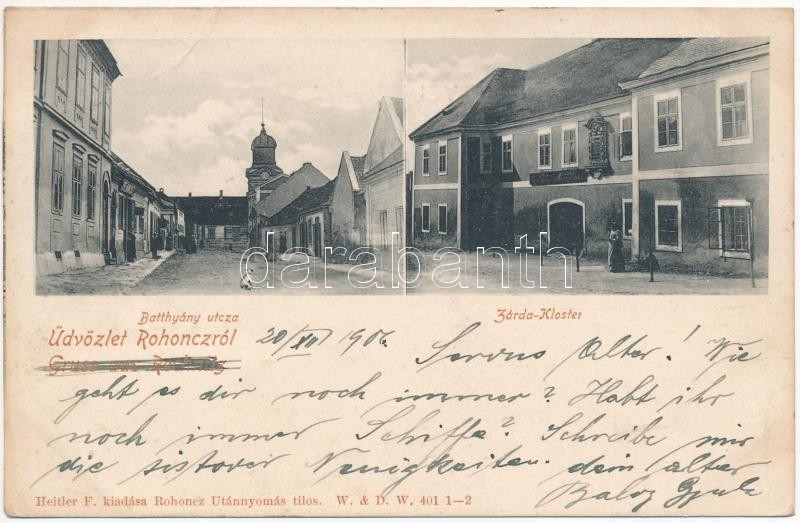 Batthyány utcza
Zárda-Kloster
Üdvözlet Rohonczról
Gruss aus Rechnitz
20/XII 1906.
Servus Alter! Wie
geht es dir noch immer? Habt ihr
noch immer Schiffe? Schreibe mir
die Neuigkeiten. dein alter
Balog Gyula
Heitler F. kiadása Rohoncz Utánnyomás tilos. W. & D. W. 401 1—2
darabanth